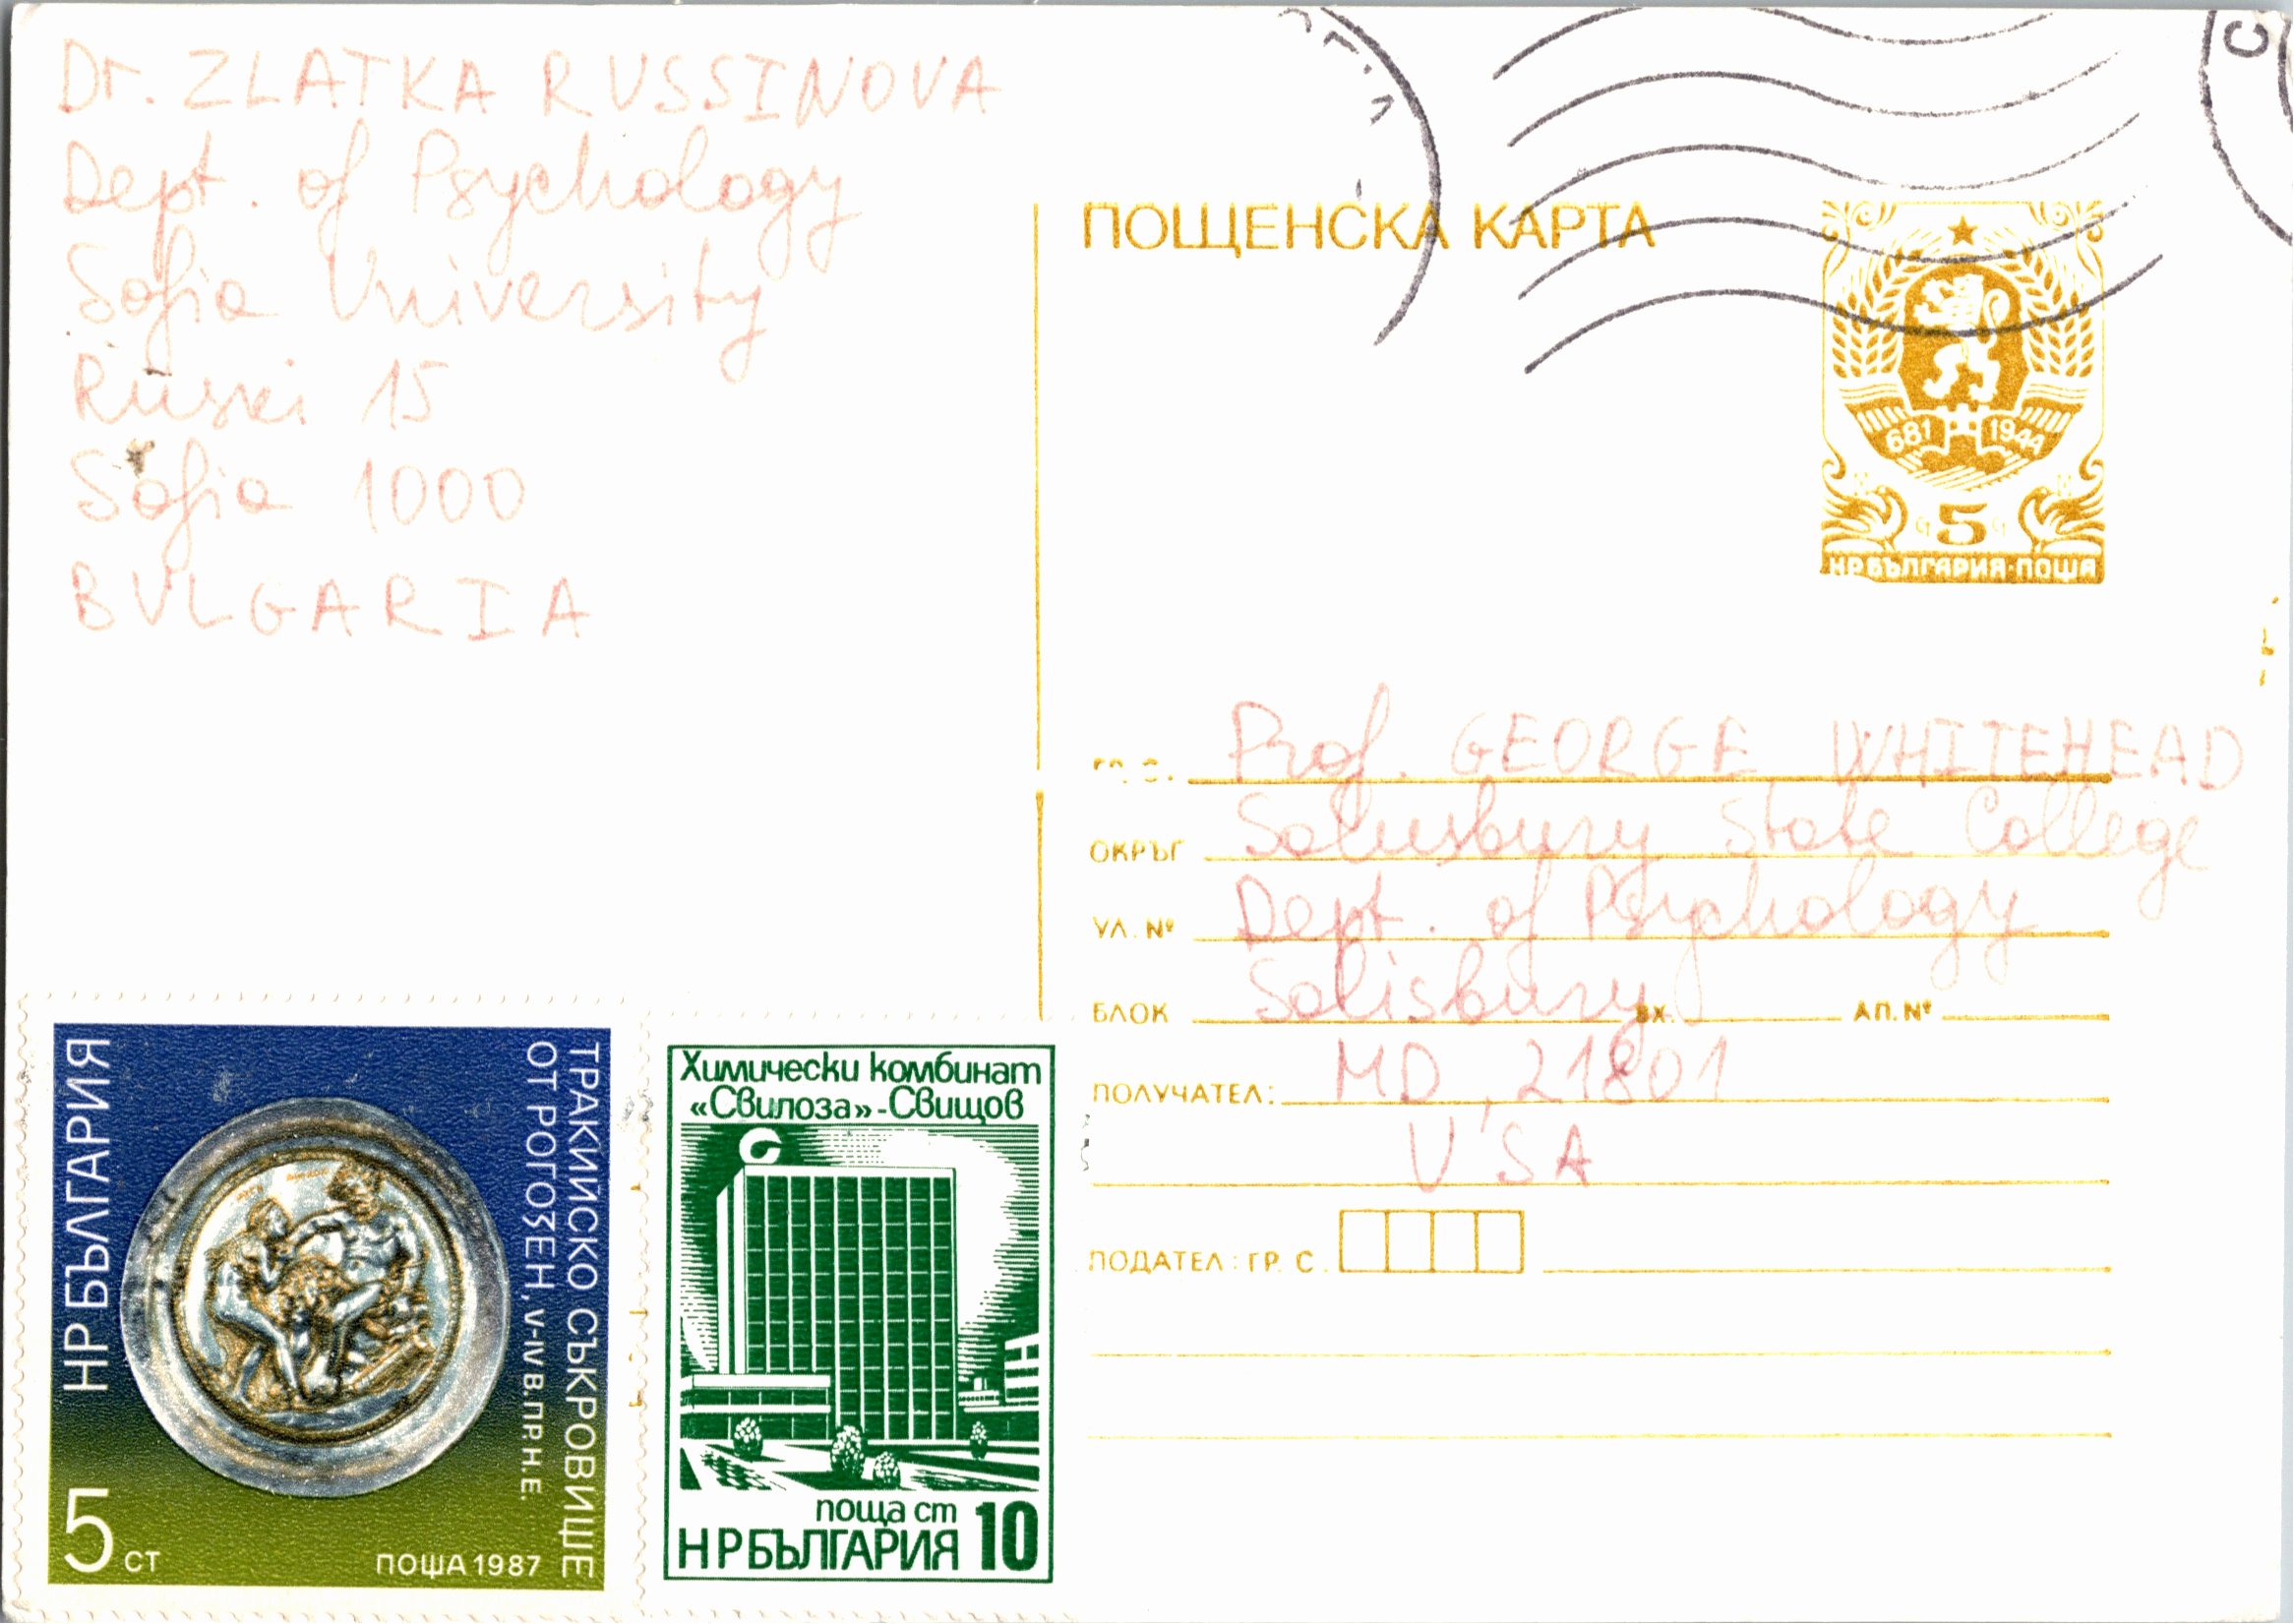 Dr. ZLATKA RUSSINOVA
Dept. of Psychology
Sofia University
Ruski 15
Sofia 1000
BULGARIA
ПОЩЕНСКА КАРТА
681 1944
5
НР БЪЛГАРИЯ·ПОЩА
Prof. GEORGE WHITEHEAD
ОКРЪГ Salusbury State College
УЛ. № Dept. of Psychology
БЛОК Salisbury ВХ. АП. №
ПОЛУЧАТЕЛ: MD, 21801
USA
ПОДАТЕЛ: ГР. С.
НР БЪЛГАРИЯ
ТРАКИЙСКО СЪКРОВИЩЕ
ОТ РОГОЗЕН, V-IV В. ПР. Н. Е.
5 СТ
ПОЩА 1987
Химически комбинат
«Свилоза»-Свищов
поща ст 10
НР БЪЛГАРИЯ